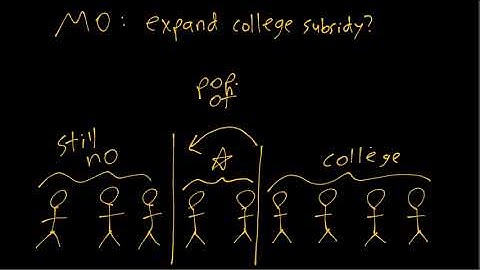 MO: expand college subsidy?
pop.
of
still
no
college